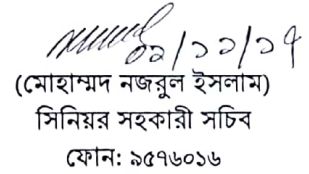 ০১/১১/১৭
(মোহাম্মদ নজরুল ইসলাম)
সিনিয়র সহকারী সচিব
ফোন: ৯৫৭৬০১৬